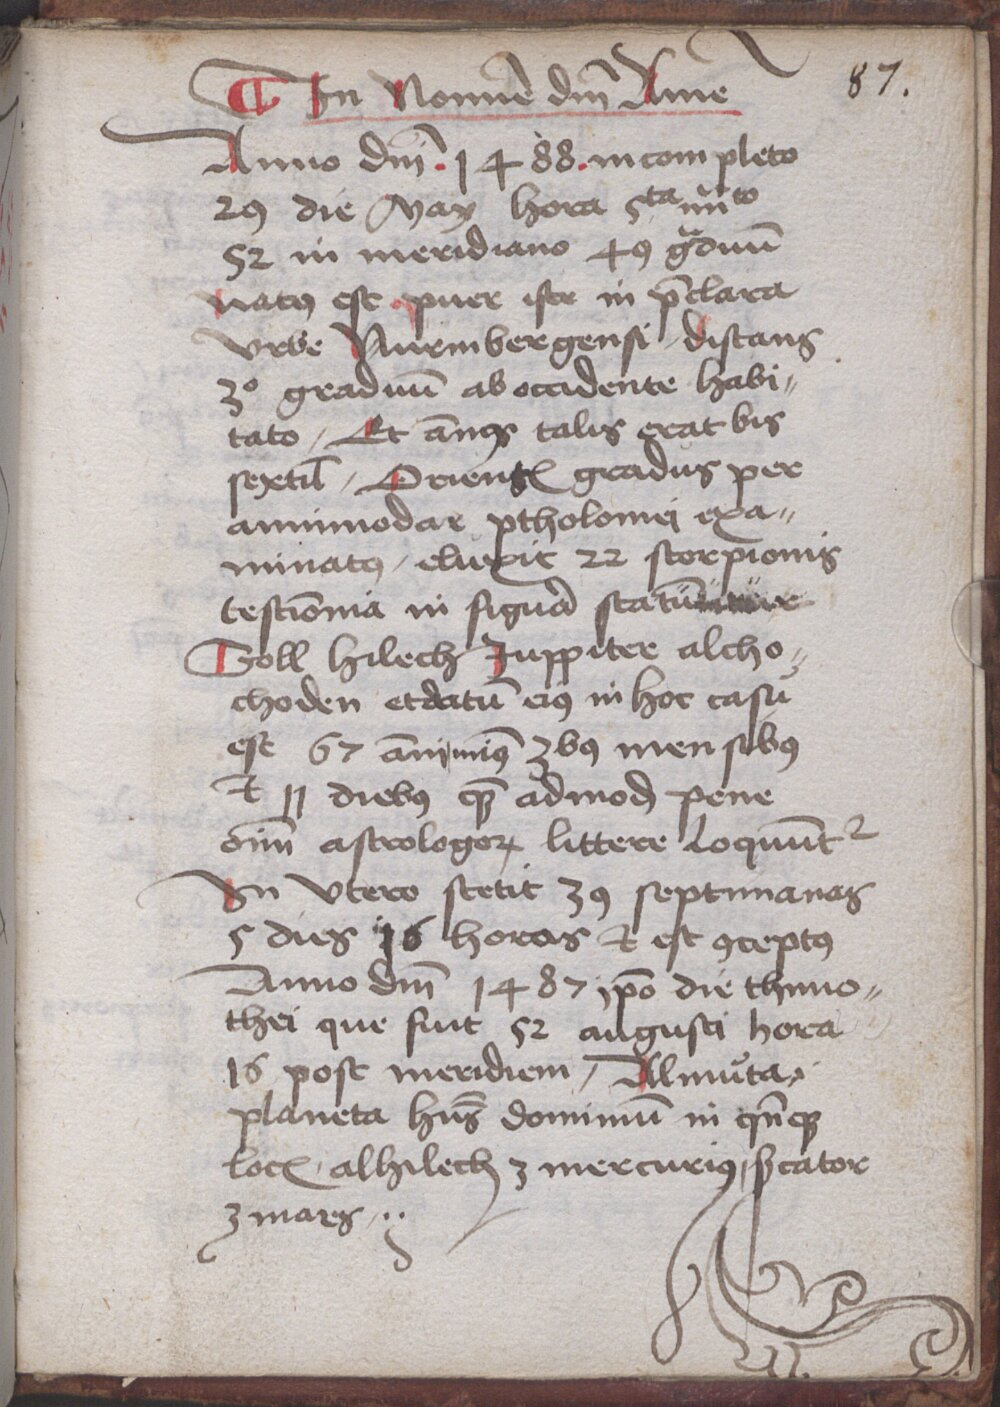 87.
In Nomine dm̄ Ame
Anno dm̄. 1488. incompleto
29 die May hora 5ta mīto
52 in meridiano 49 gͣduū
natꝰ est puer iste in p̄clara
Vrbe Nurmbergensi / distans
30 graduū ab occidente habi〃
tato / Et ān9 talis erat bis
sextil̄ / Oriens gradus per
animodar ptholomei exa〃
minatꝰ / eluxit 22 scorpionis
testiōnia in figura
Soll hilech Juppiter alcho〃
choden et datū eiꝰ in hoc casu
est 67 ān 3bꝰ mensibꝰ
Et 11 diebꝰ admod̄ pene
oīm astrologoꝝ littere loquūt᷑
In Vtero stetit 39 septimanas
5 dies 16 horas Et est ꝯceptꝰ
Anno dm̄ 1487 ip̄o die thimo〃
thei que fuit 52 augusti hora
16 post meridiem / Almuta
planeta hn̄s dominiū in
locꝭ alhilech ȝ mercuriꝰ
ȝ mars